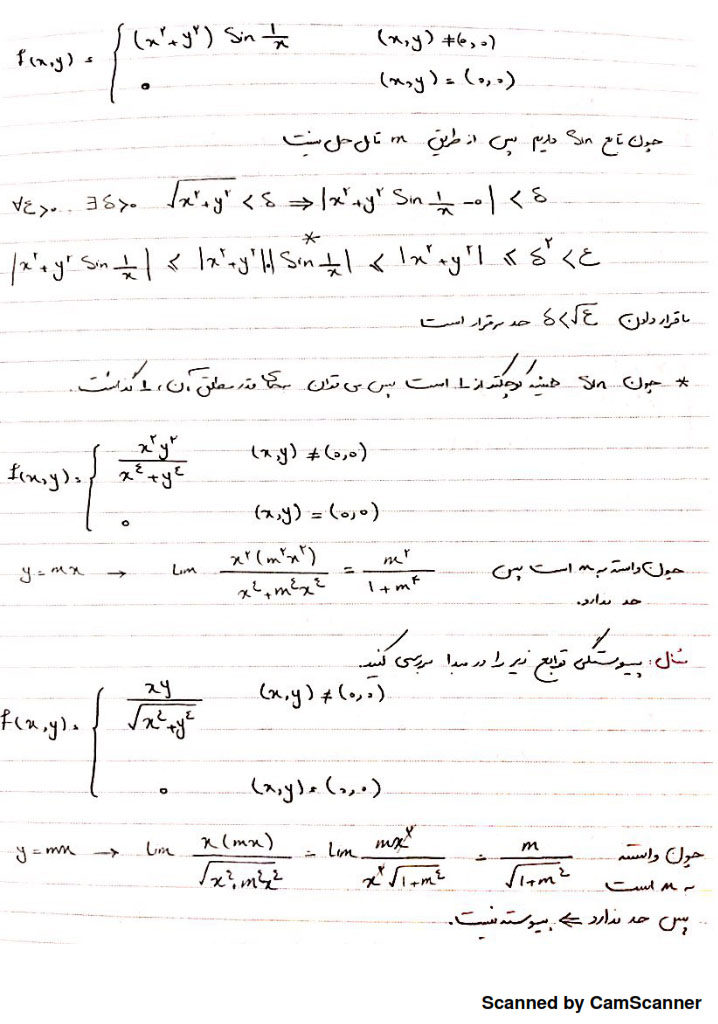 f(x,y) = { (x²+y²) Sin 1/x    (x,y) ≠ (۰,۰)
۰    (x,y) = (۰,۰)
چون تابع Sin داریم پس از طریق m قابل حل نیست
∀ε>۰ ∃δ>۰ √(x²+y²) < δ ⇒ |x²+y² Sin 1/x - ۰| < δ
|x²+y² Sin 1/x| ≤ |x²+y²|.|Sin 1/x|* ≤ |x²+y²| ≤ δ² < ε
با قرار دادن δ<√ε حد برقرار است
* چون Sin همیشه کوچکتر از 1 است پس می توان بجای قدر مطلق آن، 1 گذاشت.
f(x,y) = { x²y² / (x⁴+y⁴)    (x,y) ≠ (۰,۰)
۰    (x,y) = (۰,۰)
y=mx → Lim x²(m²x²) / (x⁴+m⁴x⁴) = m² / (1+m⁴)    چون وابسته به m است پس
حد ندارد.
مثال: پیوستگی توابع زیر را در مبدا بررسی کنید.
f(x,y) = { xy / √(x⁴+y⁴)    (x,y) ≠ (۰,۰)
۰    (x,y) = (۰,۰)
y=mx → Lim x(mx) / √(x⁴+m⁴x⁴) = Lim mx² / x²√(1+m⁴) = m / √(1+m⁴)    چون وابسته
به m است
پس حد ندارد ⇐ پیوسته نیست.
Scanned by CamScanner